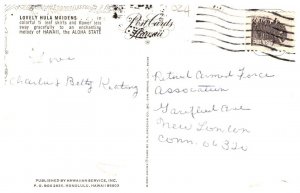 LOVELY HULA MAIDENS . . . in
colorful ti leaf skirts and flower leis
sway gracefully to an enchanting
melody of HAWAII, the ALOHA STATE
Post Cards
Hawaii
Love
Charlie & Betty Keating
Retired Armed Force
Association
Garfield Ave
New London
Conn. 06320
PUBLISHED BY HAWAIIAN SERVICE, INC.
P. O. BOX 2835, HONOLULU, HAWAII 96803